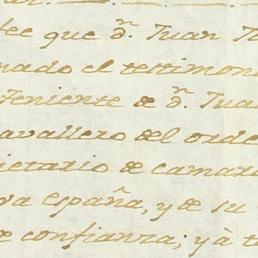 que dn. Juan
nado el testimon
Teniente de dn. Jua
cavallero del orde
ietario de camara
va españa, y de su
e confianza; y à t